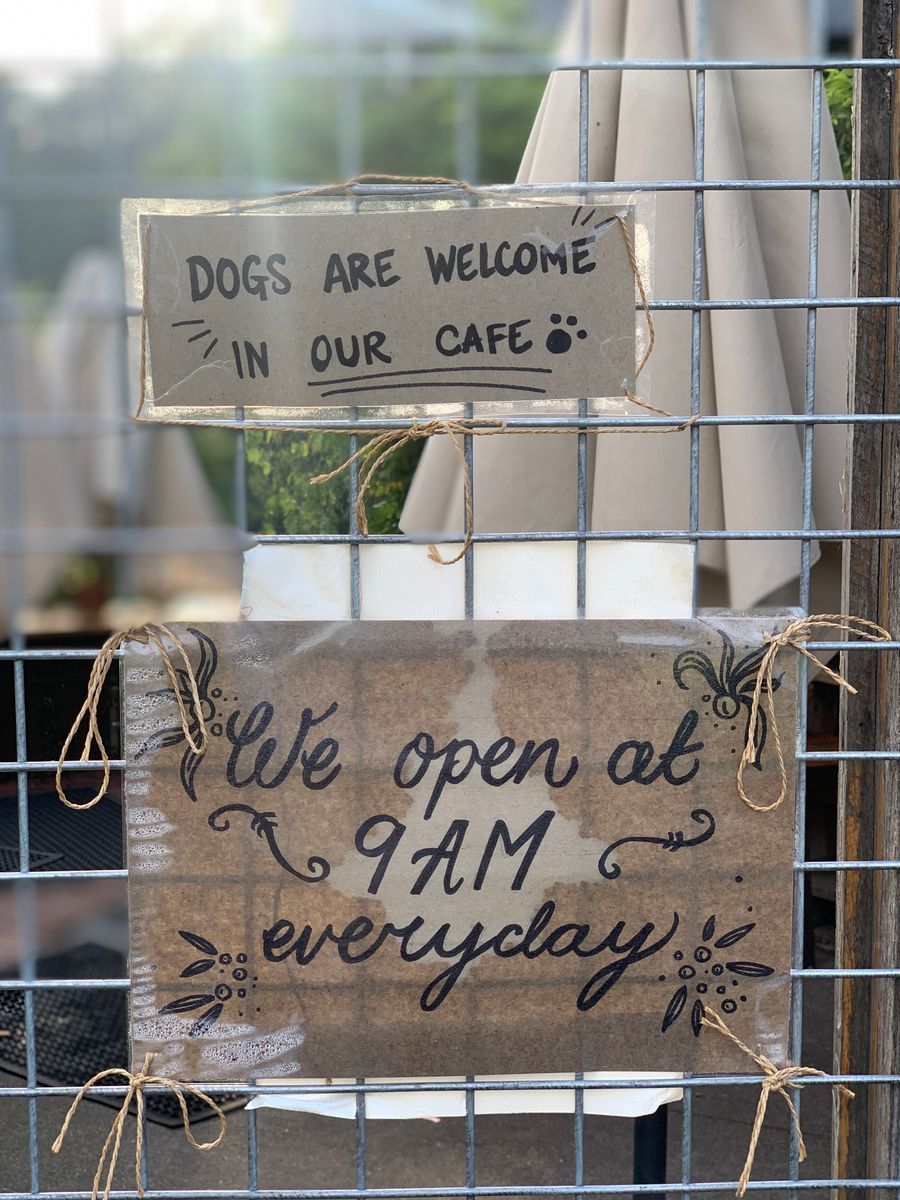 DOGS ARE WELCOME
IN OUR CAFE
We open at
9AM
everyday